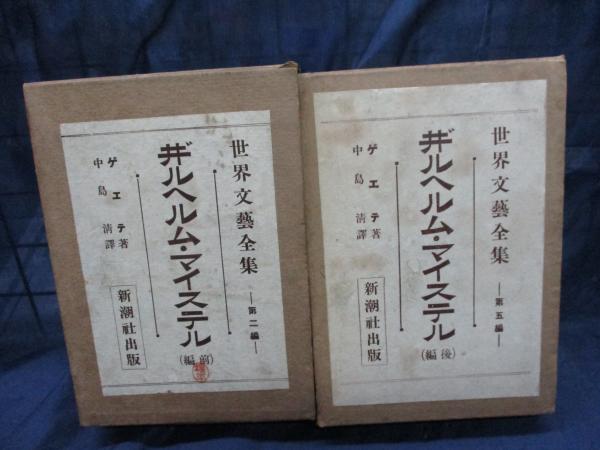 世界文藝全集
―第二編―
ヸルヘルム・マイステル
(前編)
ゲエテ著
中島清譯
新潮社出版
世界文藝全集
―第五編―
ヸルヘルム・マイステル
(後編)
ゲエテ著
中島清譯
新潮社出版